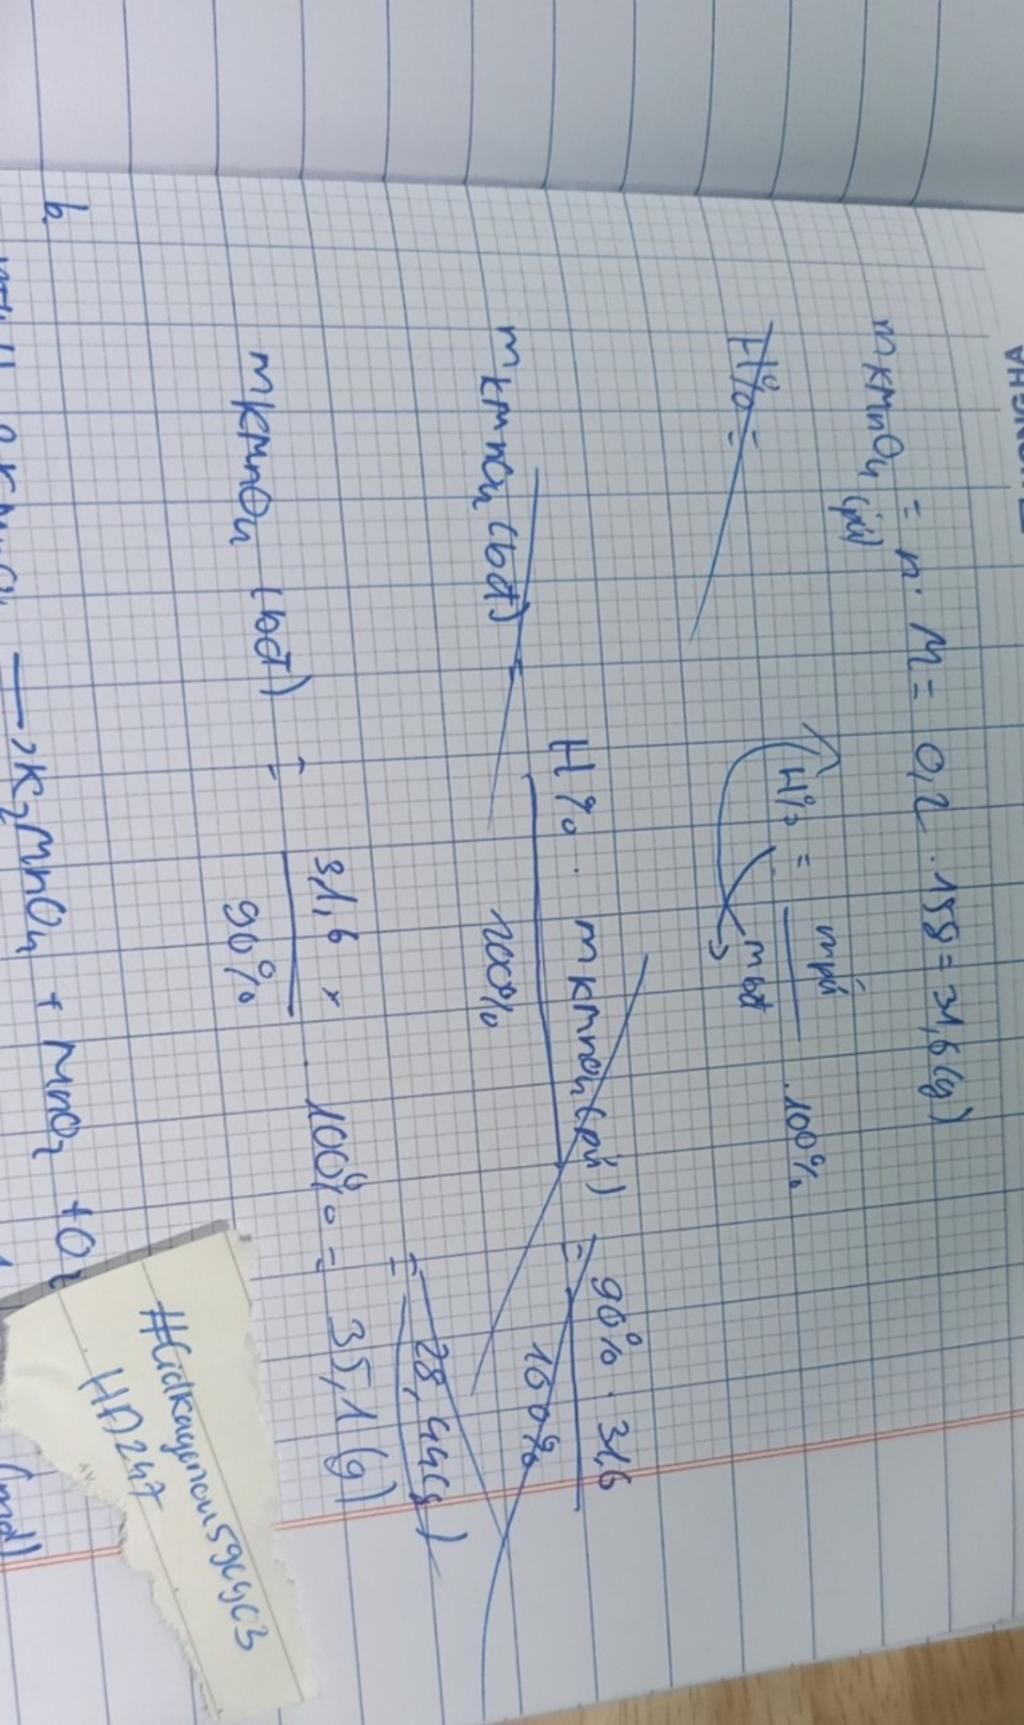 m KMnO4 (pứ) = n . M = 0,2 . 158 = 31,6 (g)
H% =
H% = mpứ / mbđ . 100%
m KMnO4 (bđ) = H% . m KMnO4 (pứ) / 100% = 90% . 31,6 / 100%
= 28,44 (g)
m KMnO4 (bđ) = 31,6 × / 90% . 100% = 35,1 (g)
b.
→ K2MnO4 + MnO2 + O2
(mol)
HĐ247